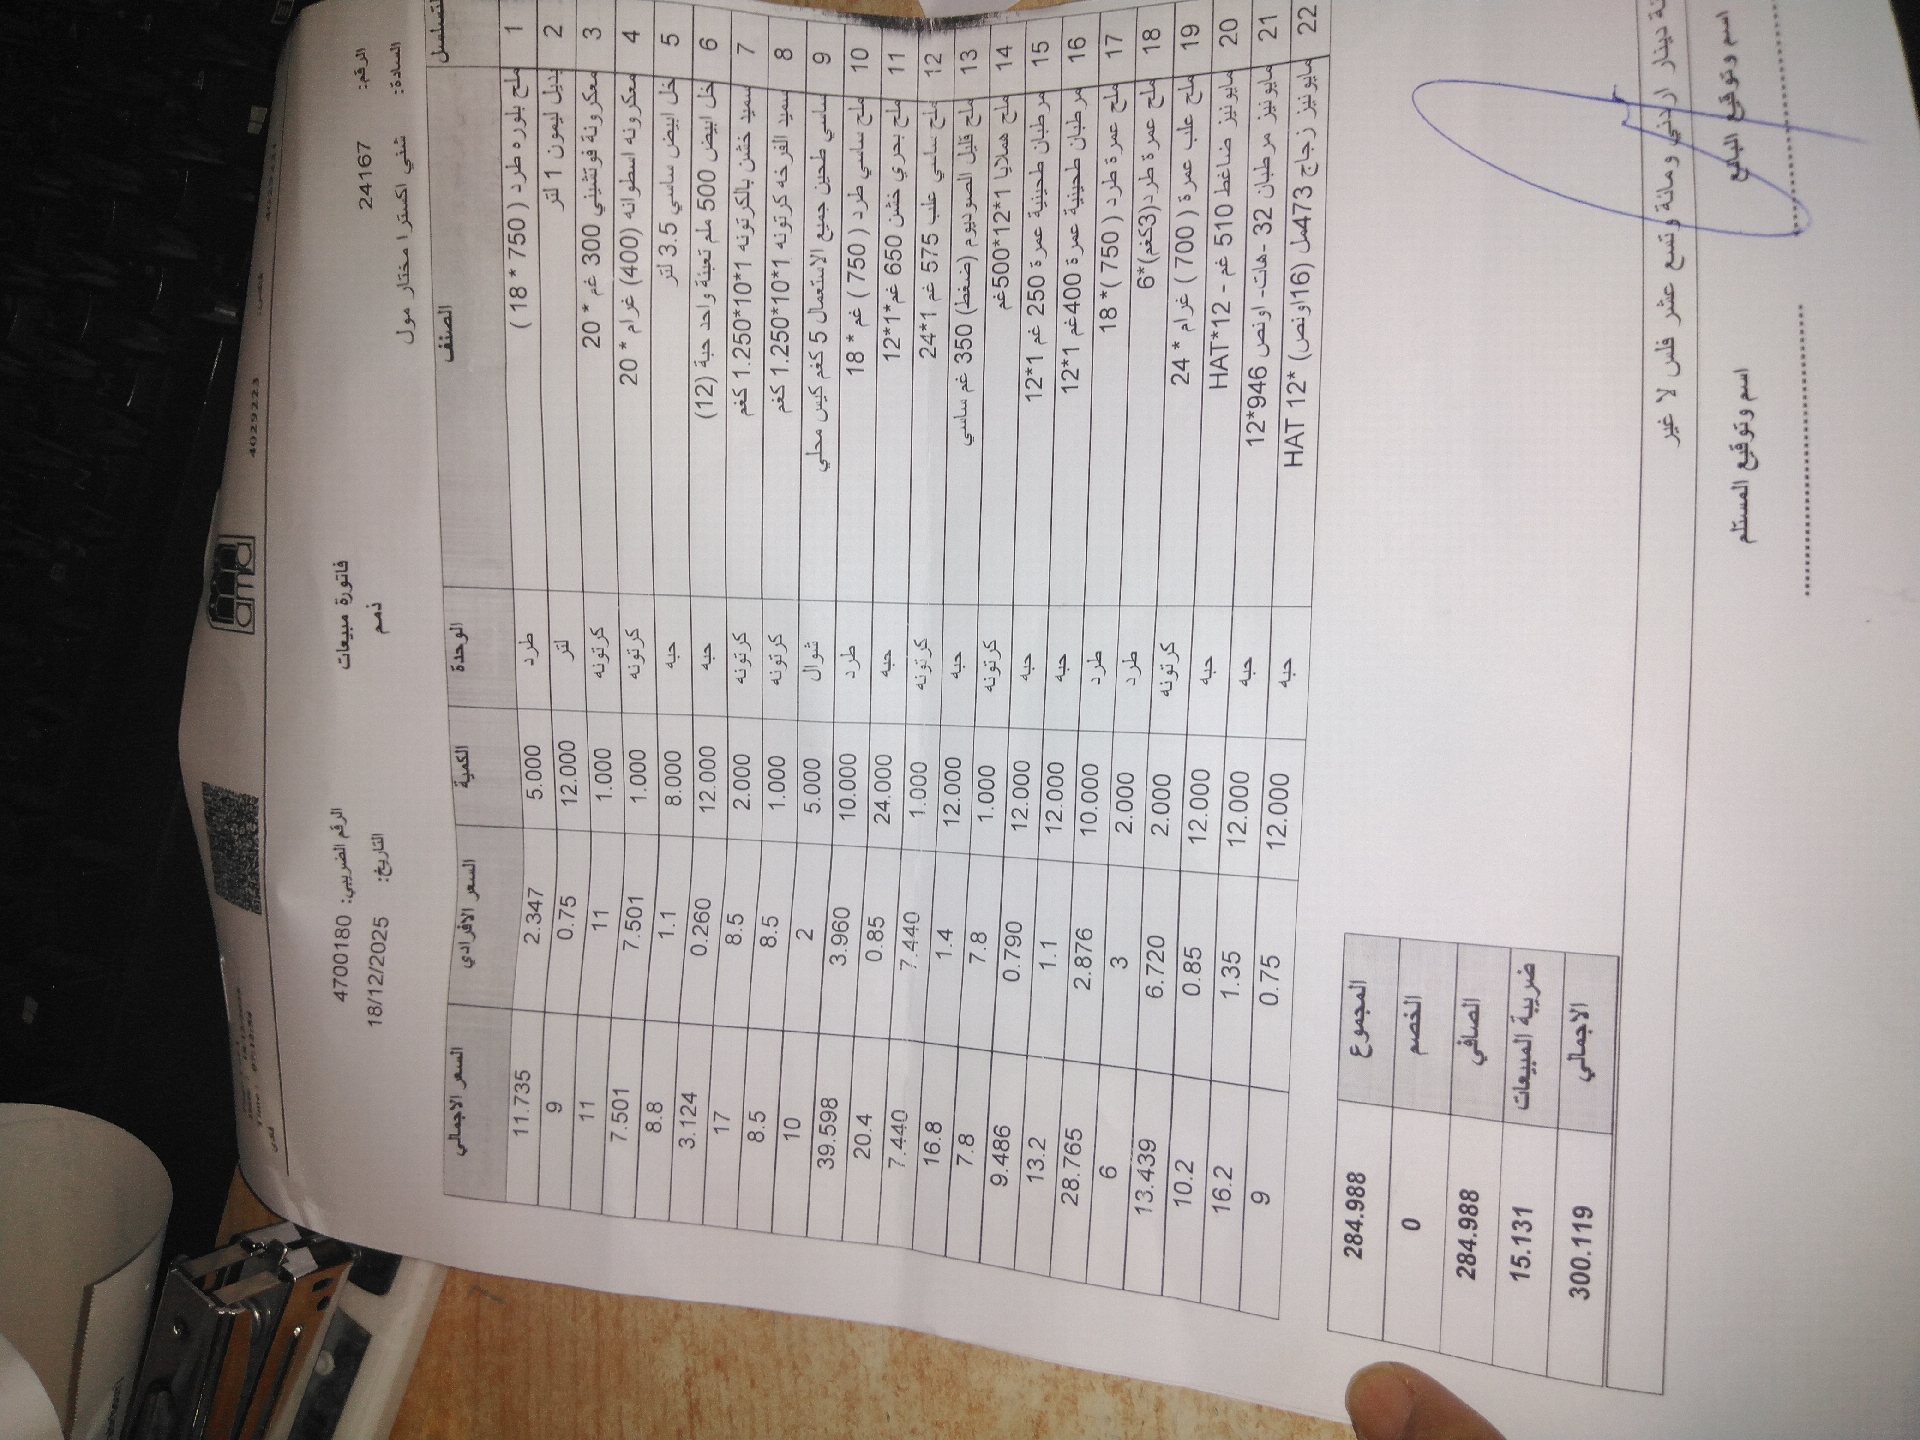 amd
4029223
فاتورة مبيعات
ذمم
الرقم: 24167
الرقم الضريبي: 4700180
السادة: شني اكسترا مختار مول
التاريخ: 18/12/2025
التسلسل الصنف الوحدة الكمية السعر الافرادي السعر الاجمالي
1 ملح بلوره طرد ( 750 * 18 ) طرد 5.000 2.347 11.735
2 بديل ليمون 1 لتر لتر 12.000 0.75 9
3 معكرونة فوتشيني 300 غم * 20 كرتونه 1.000 11 11
4 معكرونه اسطوانه (400) غرام * 20 كرتونه 1.000 7.501 7.501
5 خل ابيض ساسي 3.5 لتر حبه 8.000 1.1 8.8
6 خل ابيض 500 ملم تعبئة واحد حبة (12) حبه 12.000 0.260 3.124
7 سميد خشن بالكرتونه 1*10*1.250 كغم كرتونه 2.000 8.5 17
8 سميد الفرخه كرتونه 1*10*1.250 كغم كرتونه 1.000 8.5 8.5
9 ساسي طحين جميع الاستعمال 5 كغم كيس محلي شوال 5.000 2 10
10 ملح ساسي طرد ( 750 ) غم * 18 طرد 10.000 3.960 39.598
11 ملح بحري خشن 650 غم*1*12 حبه 24.000 0.85 20.4
12 ملح ساسي علب 575 غم 1*24 كرتونه 1.000 7.440 7.440
13 ملح قليل الصوديوم (ضغط) 350 غم ساسي حبه 12.000 1.4 16.8
14 ملح هملايا 1*12*500غم كرتونه 1.000 7.8 7.8
15 مرطبان طحينية عمرة 250 غم 1*12 حبه 12.000 0.790 9.486
16 مرطبان طحينية عمرة 400غم 1*12 حبه 12.000 1.1 13.2
17 ملح عمرة طرد ( 750 )* 18 طرد 10.000 2.876 28.765
18 ملح عمرة طرد(3كغم)*6 طرد 2.000 3 6
19 ملح علب عمرة ( 700 ) غرام * 24 كرتونه 2.000 6.720 13.439
20 مايونيز ضاغط 510 غم - 12*HAT حبه 12.000 0.85 10.2
21 مايونيز مرطبان 32 -هات- اونص 946*12 حبه 12.000 1.35 16.2
22 مايونيز زجاج 473مل (16اونص) *12 HAT حبه 12.000 0.75 9
المجموع 284.988
الخصم 0
الصافي 284.988
ضريبة المبيعات 15.131
الاجمالي 300.119
دينار اردني ومائة وتسع عشر فلس لا غير
اسم وتوقيع البائع اسم وتوقيع المستلم